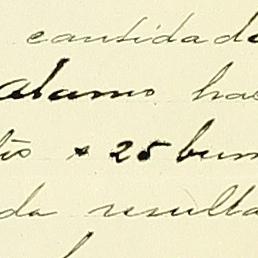 cantidad
alamo has
tis * 25 bum
da resulta